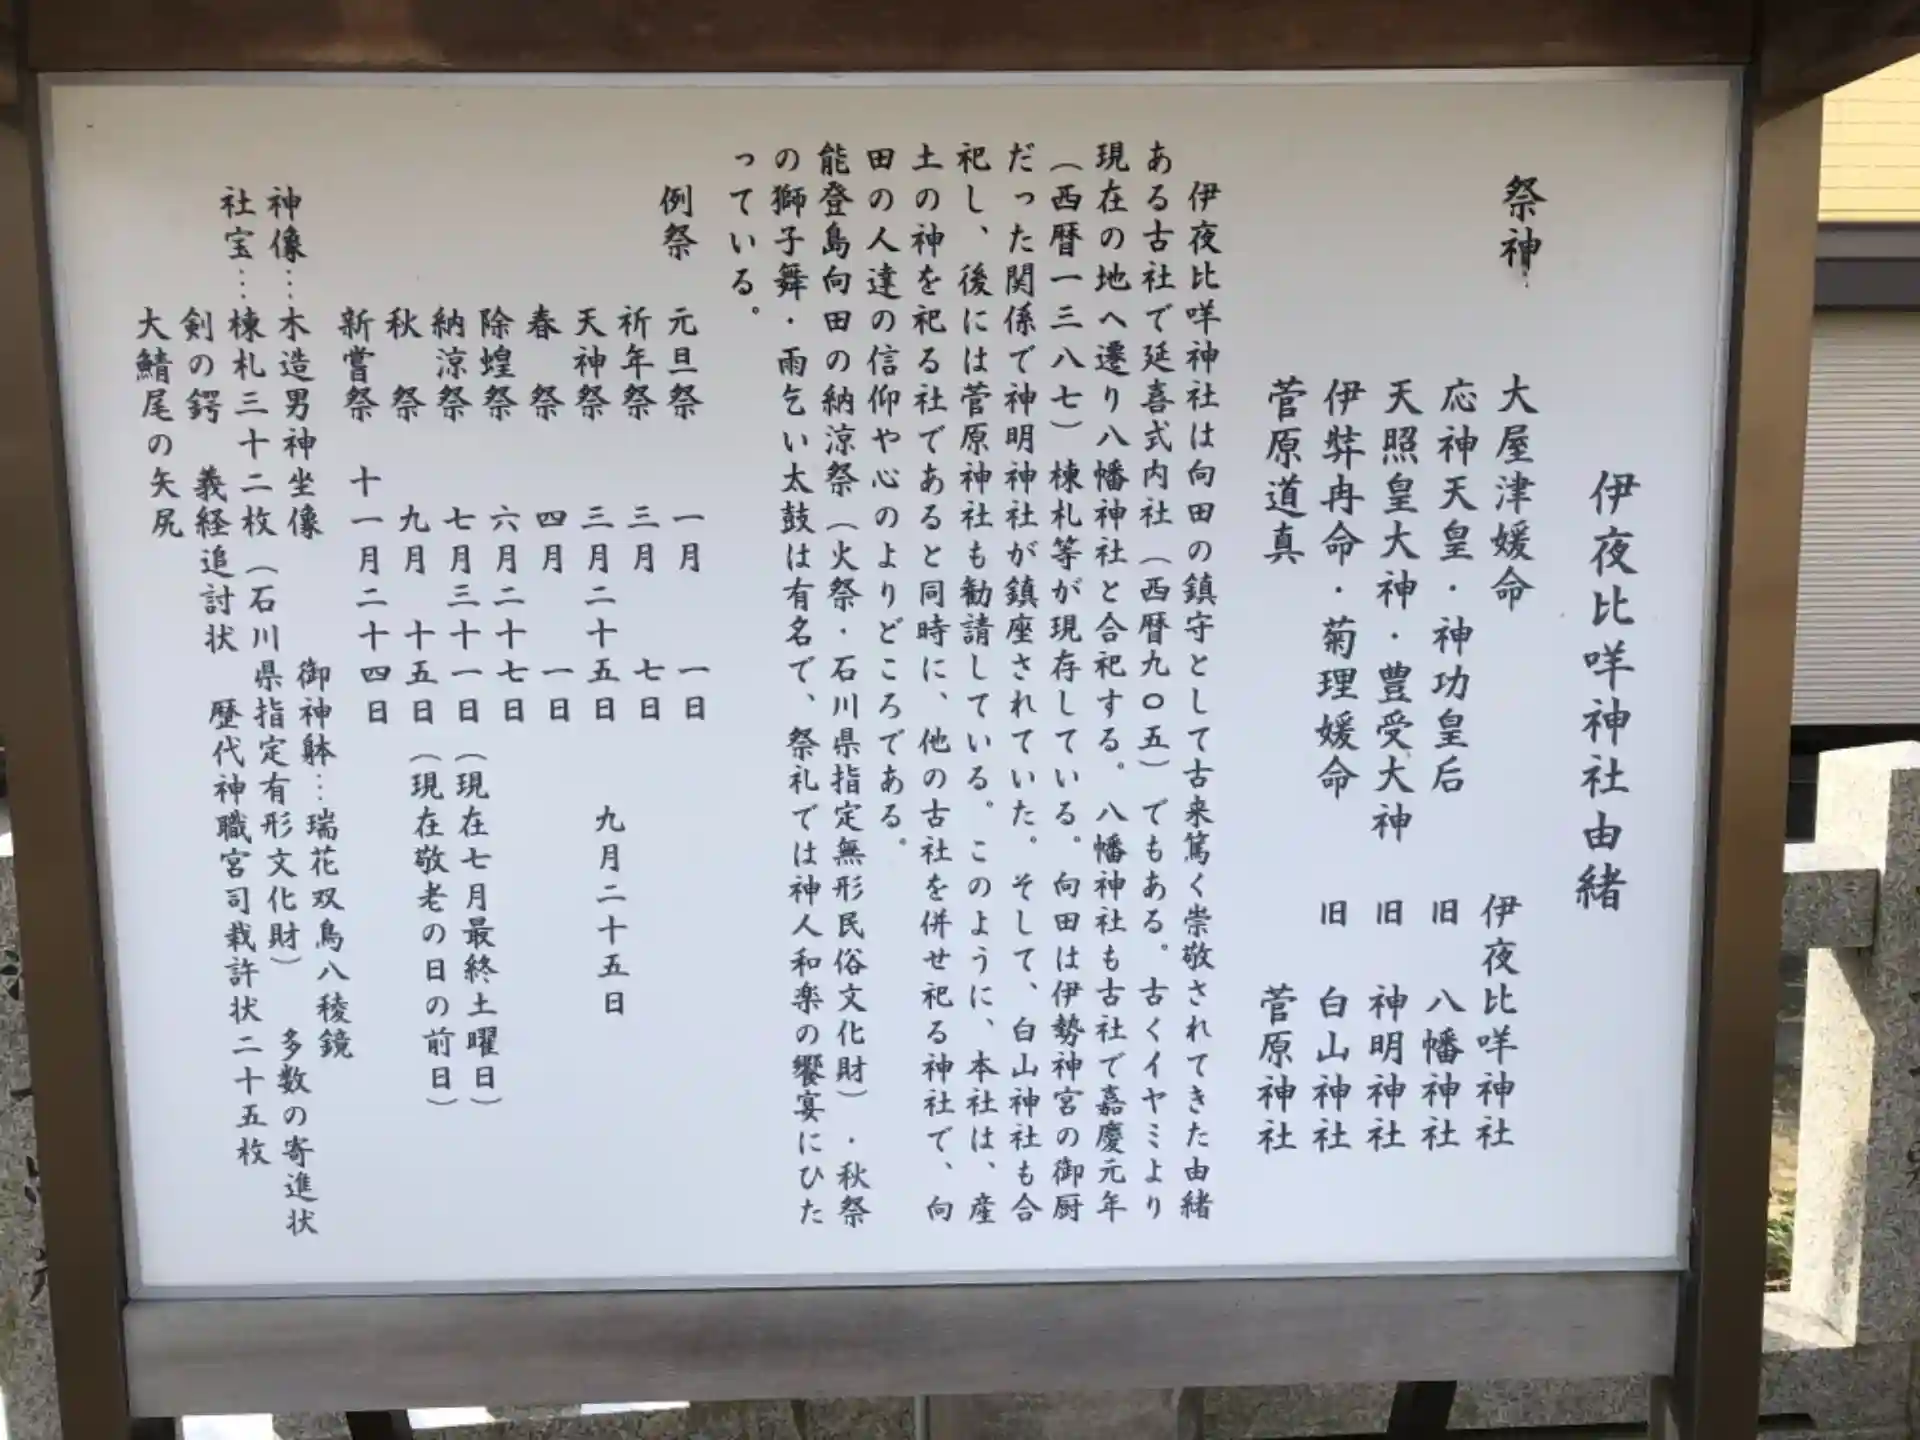 伊夜比咩神社由緒
祭神
大屋津媛命 伊夜比咩神社
応神天皇・神功皇后 旧 八幡神社
天照皇大神・豊受大神 旧 神明神社
伊弉冉命・菊理媛命 旧 白山神社
菅原道真 菅原神社
伊夜比咩神社は向田の鎮守として古来篤く崇敬されてきた由緒
ある古社で延喜式内社（西暦九〇五）でもある。古くイヤミより
現在の地へ遷り八幡神社と合祀する。八幡神社も古社で嘉慶元年
（西暦一三八七）棟札等が現存している。向田は伊勢神宮の御厨
だった関係で神明神社が鎮座されていた。そして、白山神社も合
祀し、後には菅原神社も勧請している。このように、本社は、産
土の神を祀る社であると同時に、他の古社を併せ祀る神社で、向
田の人達の信仰や心のよりどころである。
能登島向田の納涼祭（火祭・石川県指定無形民俗文化財）・秋祭
の獅子舞・雨乞い太鼓は有名で、祭礼では神人和楽の饗宴にひた
っている。
例祭
元旦祭 一月 一日
祈年祭 三月 七日
天神祭 三月二十五日 九月二十五日
春 祭 四月 一日
除蝗祭 六月二十七日
納涼祭 七月三十一日（現在七月最終土曜日）
秋 祭 九月 十五日（現在敬老の日の前日）
新嘗祭 十一月二十四日
神像…木造男神坐像 御神躰…瑞花双鳥八稜鏡
社宝…棟札三十二枚（石川県指定有形文化財） 多数の寄進状
剣の鍔 義経追討状 歴代神職宮司裁許状二十五枚
大鯖尾の矢尻